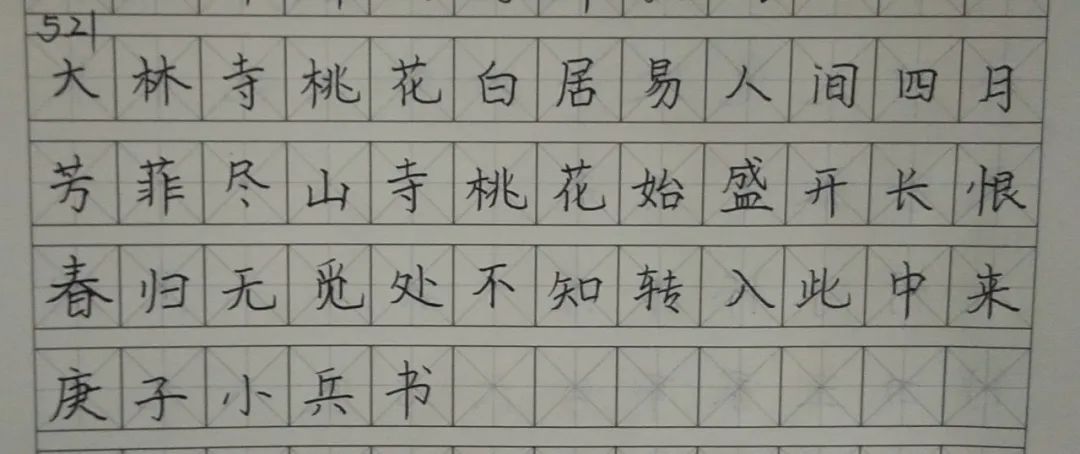 521
大林寺桃花白居易人间四月
芳菲尽山寺桃花始盛开长恨
春归无觅处不知转入此中来
庚子小兵书